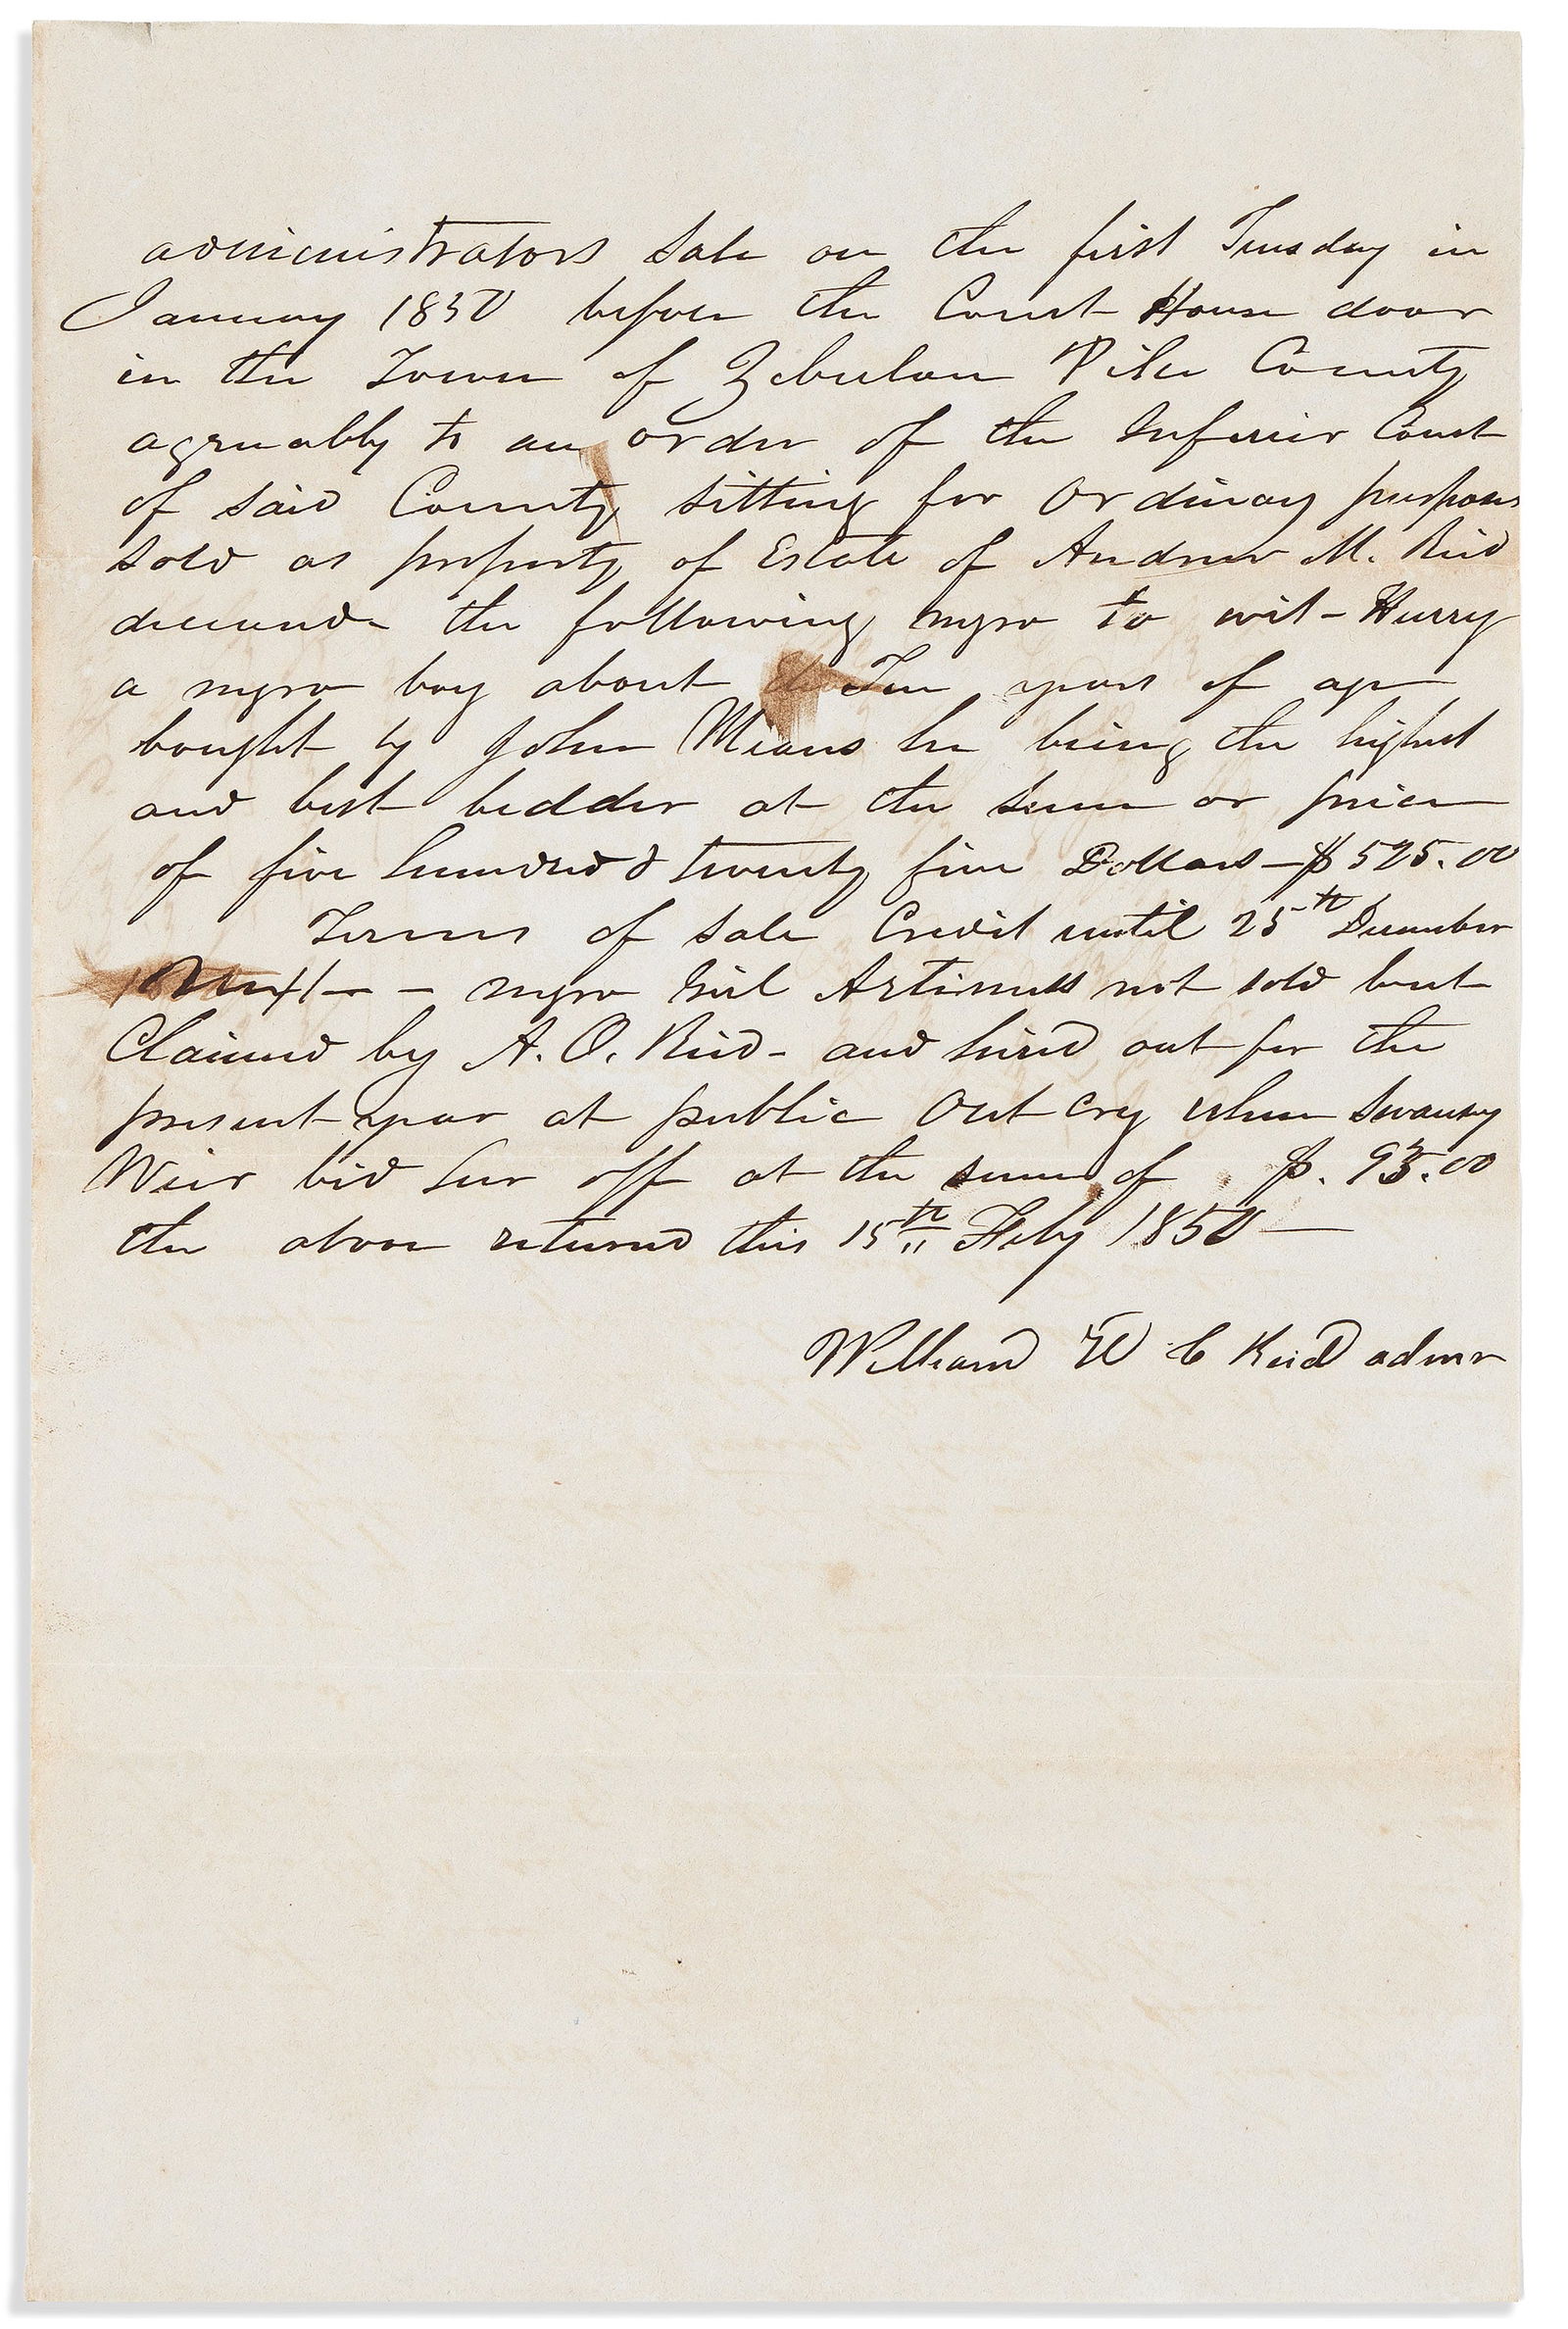 administrators Sale on the first Tuesday in
January 1850 before the Court House door
in the Town of Zebulon Pike County
agreeably to an order of the Inferior Court
of said County sitting for Ordinary purposes
sold as property of Estate of Andrew M. Reid
deceased the following negro to wit - Henry
a negro boy about Ten years of age
bought by John Means he being the highest
and best bidder at the sum or price
of five hundred & twenty five Dollars - $525.00
Terms of sale Credit until 25th December
Next - - negro Girl not sold but
Claimed by A. O. Reid - and hired out for the
present year at public Out cry when Swanny
Weir bid her off at the sum of $. 95.00
the above returned this 15th Feby 1850 -
William W C Reid admr